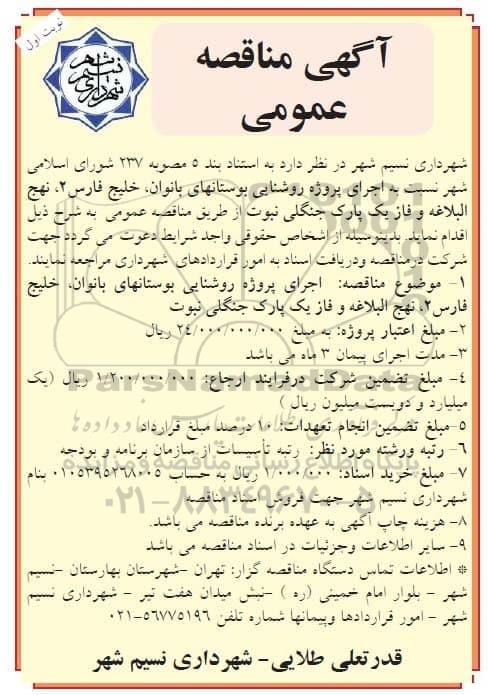 نوبت اول
شهرداری نسیم شهر
آگهی مناقصه
عمومی
شهرداری نسیم شهر در نظر دارد به استناد بند ۵ مصوبه ۲۳۷ شورای اسلامی
شهر نسبت به اجرای پروژه روشنایی بوستانهای بانوان، خلیج فارس۲، نهج
البلاغه و فاز یک پارک جنگلی نبوت از طریق مناقصه عمومی به شرح ذیل
اقدام نماید. بدینوسیله از اشخاص حقوقی واجد شرایط دعوت می گردد جهت
شرکت درمناقصه ودریافت اسناد به امور قراردادهای شهرداری مراجعه نمایند.
۱- موضوع مناقصه: اجرای پروژه روشنایی بوستانهای بانوان، خلیج
فارس۲، نهج البلاغه و فاز یک پارک جنگلی نبوت
۲- مبلغ اعتبار پروژه: به مبلغ ۲۴/۰۰۰/۰۰۰/۰۰۰ ریال
۳- مدت اجرای پیمان ۳ ماه می باشد
۴- مبلغ تضمین شرکت درفرایند ارجاع: ۱/۲۰۰/۰۰۰/۰۰۰ ریال (یک
میلیارد و دویست میلیون ریال )
۵-مبلغ تضمین انجام تعهدات: ۱۰ درصد مبلغ قرارداد
۶- رتبه ورشته مورد نظر: رتبه تأسیسات از سازمان برنامه و بودجه
۷- مبلغ خرید اسناد: ۱/۰۰۰/۰۰۰ ریال به حساب ۰۱۰۵۳۹۵۲۶۸۰۰۵ بنام
شهرداری نسیم شهر جهت فروش اسناد مناقصه
۸- هزینه چاپ آگهی به عهده برنده مناقصه می باشد.
۹- سایر اطلاعات وجزئیات در اسناد مناقصه می باشد
* اطلاعات تماس دستگاه مناقصه گزار: تهران -شهرستان بهارستان -نسیم
شهر - بلوار امام خمینی (ره ) -نبش میدان هفت تیر - شهرداری نسیم
شهر - امور قراردادها وپیمانها شماره تلفن ۵۶۷۷۵۱۹۶-۰۲۱
قدرتعلی طلایی- شهرداری نسیم شهر
ParsNamadData
پایگاه اطلاع رسانی مناقصه و مزایده
۰۲۱-۸۸۳۴۹۶۷۰-۵